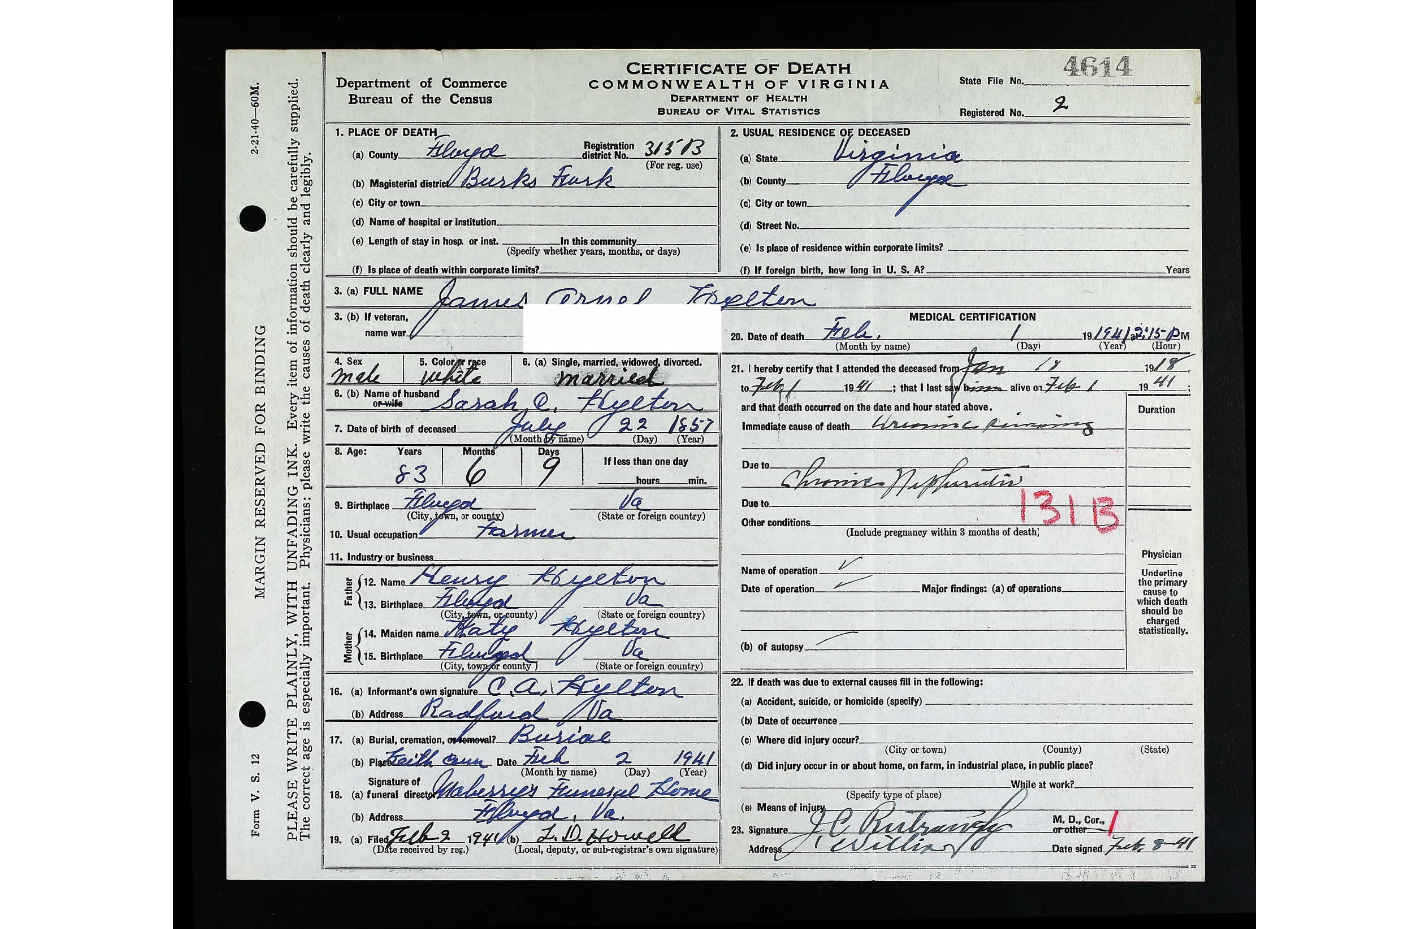 CERTIFICATE OF DEATH
COMMONWEALTH OF VIRGINIA
DEPARTMENT OF HEALTH
BUREAU OF VITAL STATISTICS
Department of Commerce
Bureau of the Census
State File No. 4614
Registered No. 2
2-21-40—60M.
MARGIN RESERVED FOR BINDING
Form V. S. 12
PLEASE WRITE PLAINLY, WITH UNFADING INK. Every item of information should be carefully supplied.
The correct age is especially important. Physicians: please write the causes of death clearly and legibly.
1. PLACE OF DEATH
(a) County Floyd Registration district No. 315B
(For reg. use)
(b) Magisterial district Burks Fork
(c) City or town
(d) Name of hospital or institution
(e) Length of stay in hosp. or inst. In this community
(Specify whether years, months, or days)
(f) Is place of death within corporate limits?
2. USUAL RESIDENCE OF DECEASED
(a) State Virginia
(b) County Floyd
(c) City or town
(d) Street No.
(e) Is place of residence within corporate limits?
(f) If foreign birth, how long in U. S. A? Years
3. (a) FULL NAME James Hylton
3. (b) If veteran,
name war
4. Sex 5. Color or race 6. (a) Single, married, widowed, divorced.
Male White Married
6. (b) Name of husband
or wife Sarah Hylton
7. Date of birth of deceased July 22 1857
(Month by name) (Day) (Year)
8. Age: Years Months Days If less than one day
83 6 9 hours min.
9. Birthplace Floyd Va
(City, town, or county) (State or foreign country)
10. Usual occupation Farmer
11. Industry or business
Father
12. Name Henry Hylton
13. Birthplace Floyd Va
(City, town, or county) (State or foreign country)
Mother
14. Maiden name Katy Hylton
15. Birthplace Floyd Va
(City, town or county) (State or foreign country)
16. (a) Informant's own signature C. A. Hylton
(b) Address Radford Va
17. (a) Burial, cremation, or removal? Burial
(b) Place Date Feb 2 1941
(Month by name) (Day) (Year)
Signature of
18. (a) funeral director Funeral Home
(b) Address Floyd, Va.
19. (a) Filed Feb 2 1941 (b) L. D. Howell
(Date received by reg.) (Local, deputy, or sub-registrar's own signature)
MEDICAL CERTIFICATION
20. Date of death Feb. 1 19 1941 2:15 P M
(Month by name) (Day) (Year) (Hour)
21. I hereby certify that I attended the deceased from Jan 18 19
to Feb 1 19 41; that I last saw him alive on Feb 1 19 41;
and that death occurred on the date and hour stated above.
Duration
Immediate cause of death Uremic
Due to Chronic Nephritis
Due to
131B
Other conditions
(Include pregnancy within 3 months of death)
Name of operation
Date of operation Major findings: (a) of operations
(b) of autopsy
Physician
Underline
the primary
cause to
which death
should be
charged
statistically.
22. If death was due to external causes fill in the following:
(a) Accident, suicide, or homicide (specify)
(b) Date of occurrence
(c) Where did injury occur?
(City or town) (County) (State)
(d) Did injury occur in or about home, on farm, in industrial place, in public place?
While at work?
(Specify type of place)
(e) Means of injury
23. Signature J. C. M. D., Cor.,
or other 1
Address Date signed Feb. 8-41